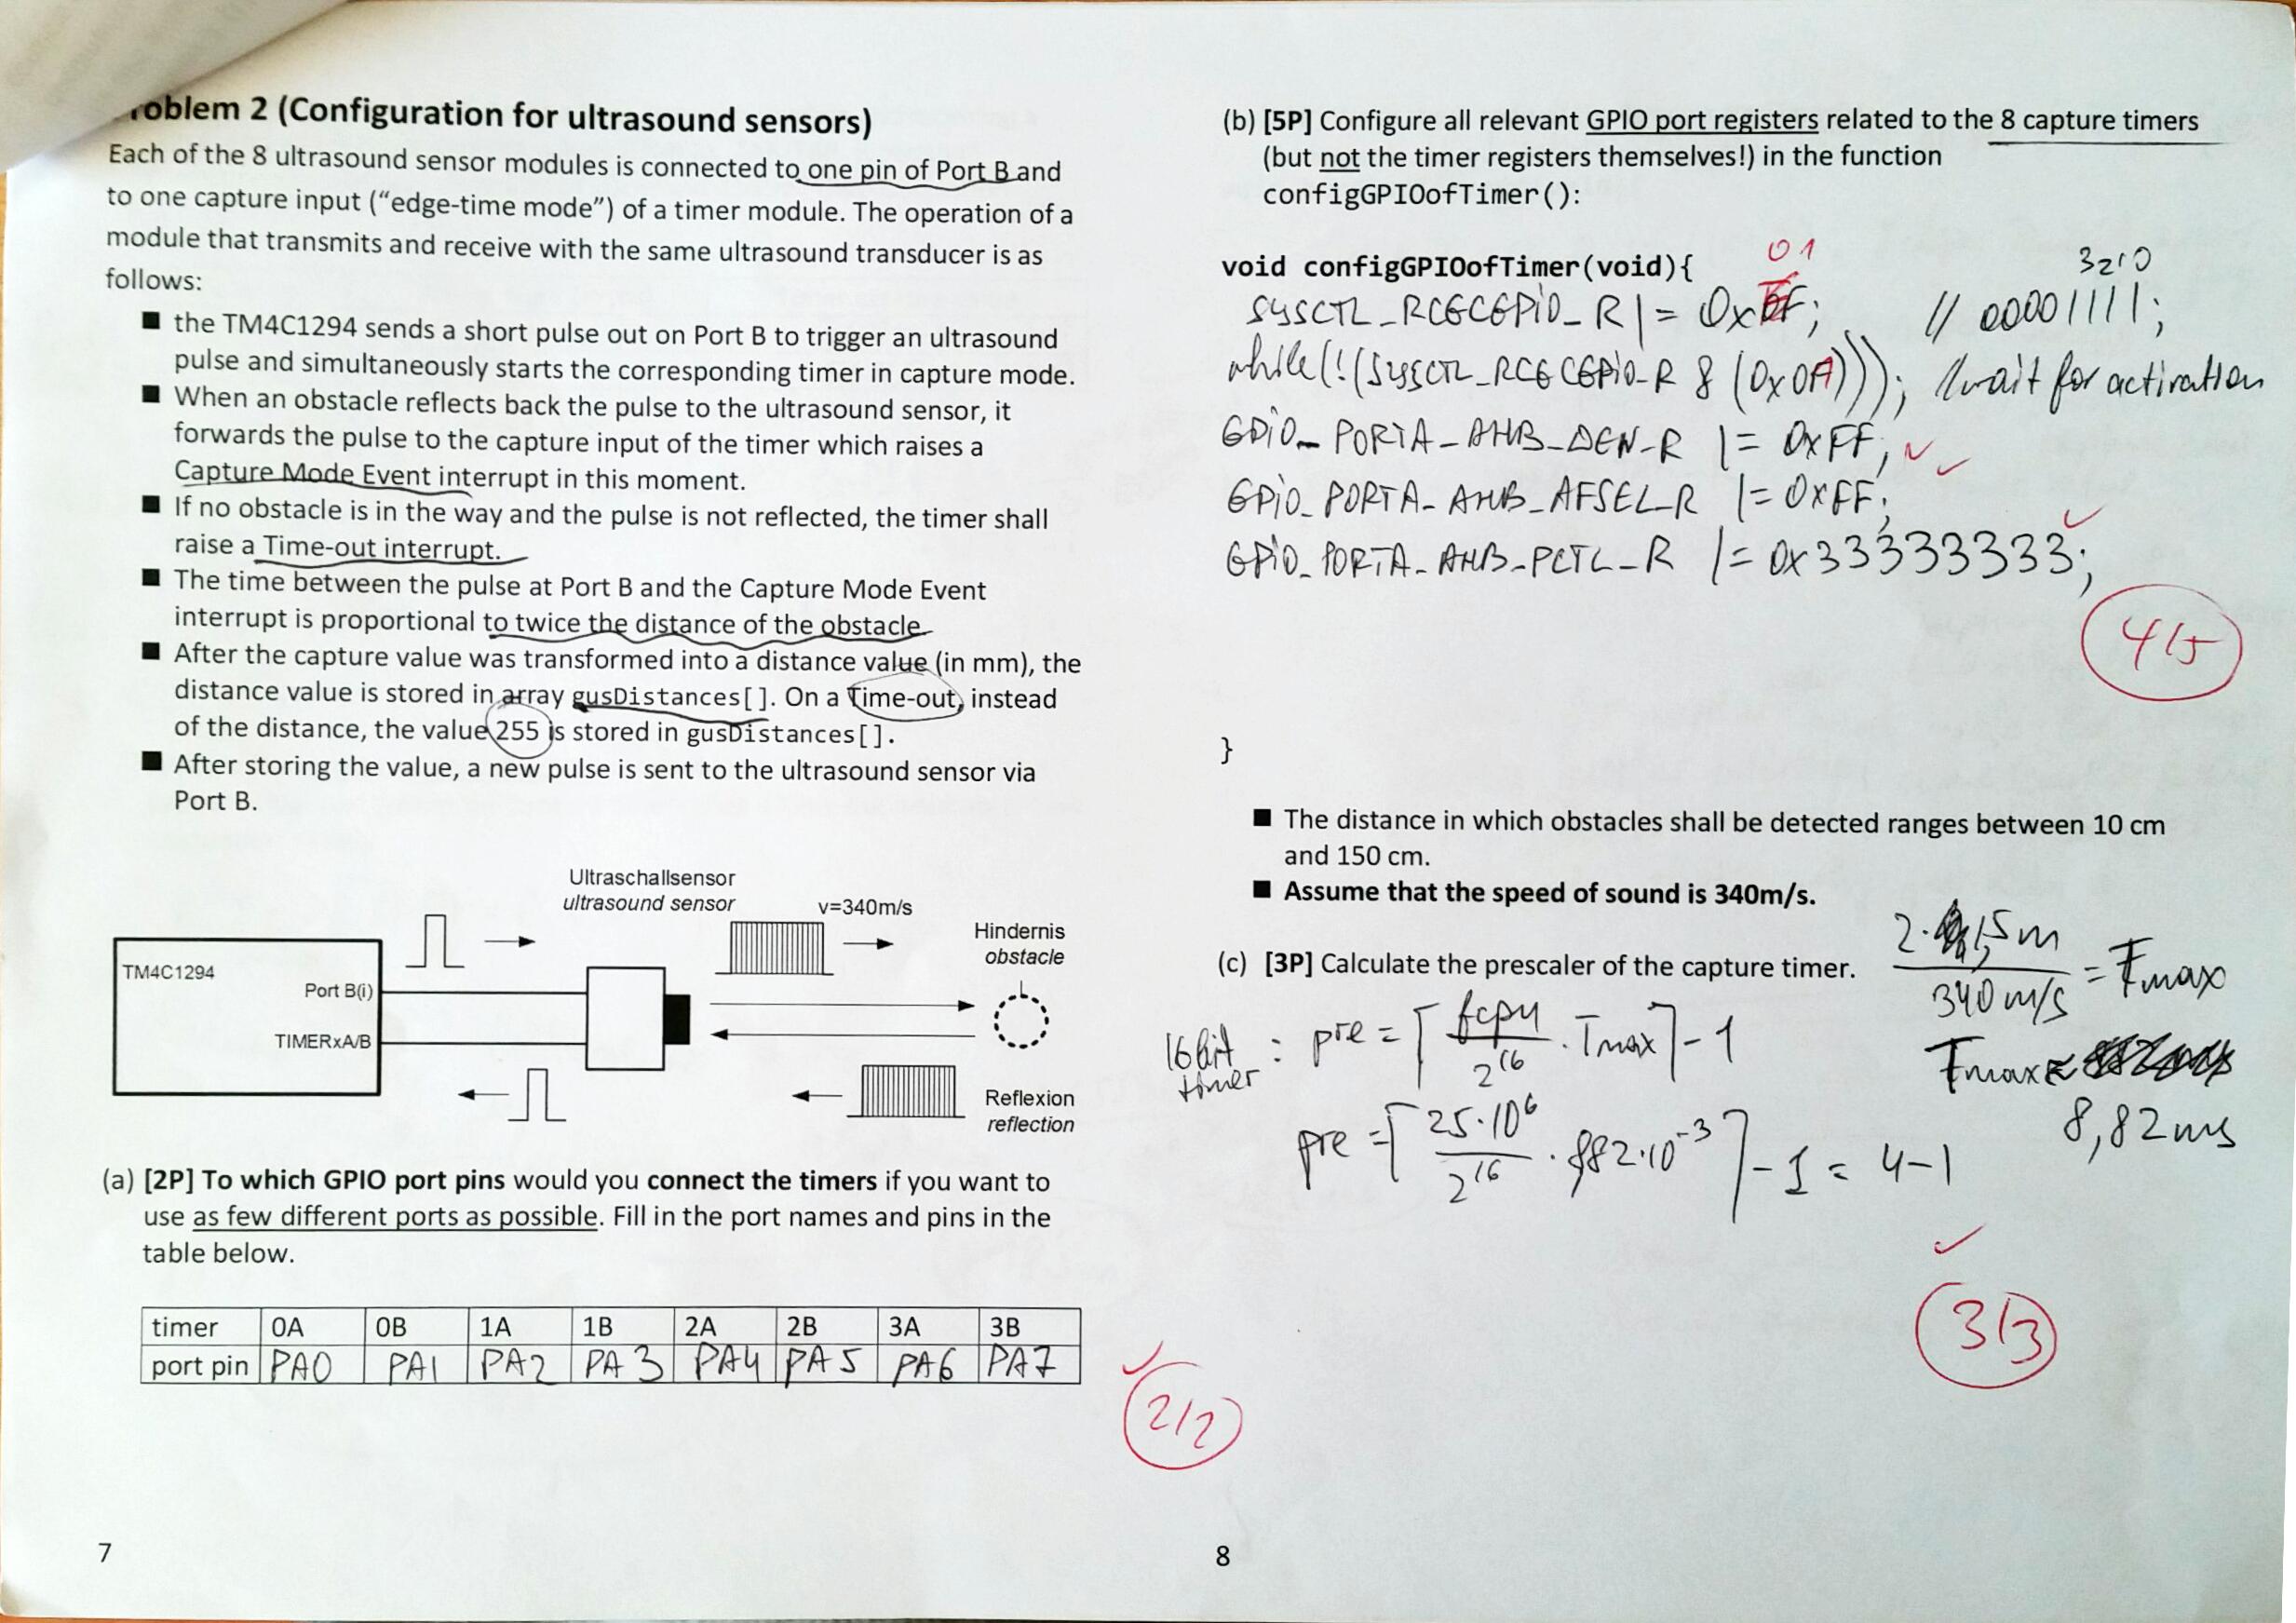 oblem 2 (Configuration for ultrasound sensors)
Each of the 8 ultrasound sensor modules is connected to one pin of Port B and
to one capture input (“edge-time mode”) of a timer module. The operation of a
module that transmits and receive with the same ultrasound transducer is as
follows:
■ the TM4C1294 sends a short pulse out on Port B to trigger an ultrasound
pulse and simultaneously starts the corresponding timer in capture mode.
■ When an obstacle reflects back the pulse to the ultrasound sensor, it
forwards the pulse to the capture input of the timer which raises a
Capture Mode Event interrupt in this moment.
■ If no obstacle is in the way and the pulse is not reflected, the timer shall
raise a Time-out interrupt.
■ The time between the pulse at Port B and the Capture Mode Event
interrupt is proportional to twice the distance of the obstacle
■ After the capture value was transformed into a distance value (in mm), the
distance value is stored in array gusDistances[]. On a Time-out, instead
of the distance, the value 255 is stored in gusDistances[].
■ After storing the value, a new pulse is sent to the ultrasound sensor via
Port B.
Ultraschallsensor
ultrasound sensor
v=340m/s
Hindernis
obstacle
TM4C1294
Port B(i)
TIMERxA/B
Reflexion
reflection
(a) [2P] To which GPIO port pins would you connect the timers if you want to
use as few different ports as possible. Fill in the port names and pins in the
table below.
timer 0A 0B 1A 1B 2A 2B 3A 3B
port pin PA0 PA1 PA2 PA3 PA4 PA5 PA6 PA7
2/2
7
(b) [5P] Configure all relevant GPIO port registers related to the 8 capture timers
(but not the timer registers themselves!) in the function
configGPIOofTimer():
01
3210
void configGPIOofTimer(void){
SYSCTL_RCGCGPIO_R |= 0x F; // 00001111;
while(!(SYSCTL_RCGCGPIO_R & (0x0A))); //wait for activation
GPIO_PORTA_AHB_DEN_R |= 0xFF;
GPIO_PORTA_AHB_AFSEL_R |= 0xFF;
GPIO_PORTA_AHB_PCTL_R |= 0x33333333;
4/5
}
■ The distance in which obstacles shall be detected ranges between 10 cm
and 150 cm.
■ Assume that the speed of sound is 340m/s.
(c) [3P] Calculate the prescaler of the capture timer.
2·1,5m / 340 m/s = Tmax
Tmax =
8,82ms
16bit timer : pre = ⌈ fcpu / 2^16 · Tmax ⌉ - 1
pre = ⌈ 25·10^6 / 2^16 · 8,82·10^-3 ⌉ - 1 = 4-1
3/3
8